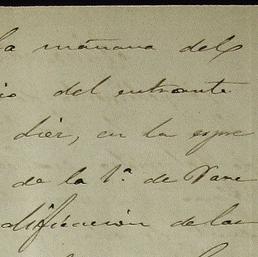 la mañana del
io del entrante
diez, en la espre
de la 1ª de Vare
dificación de las